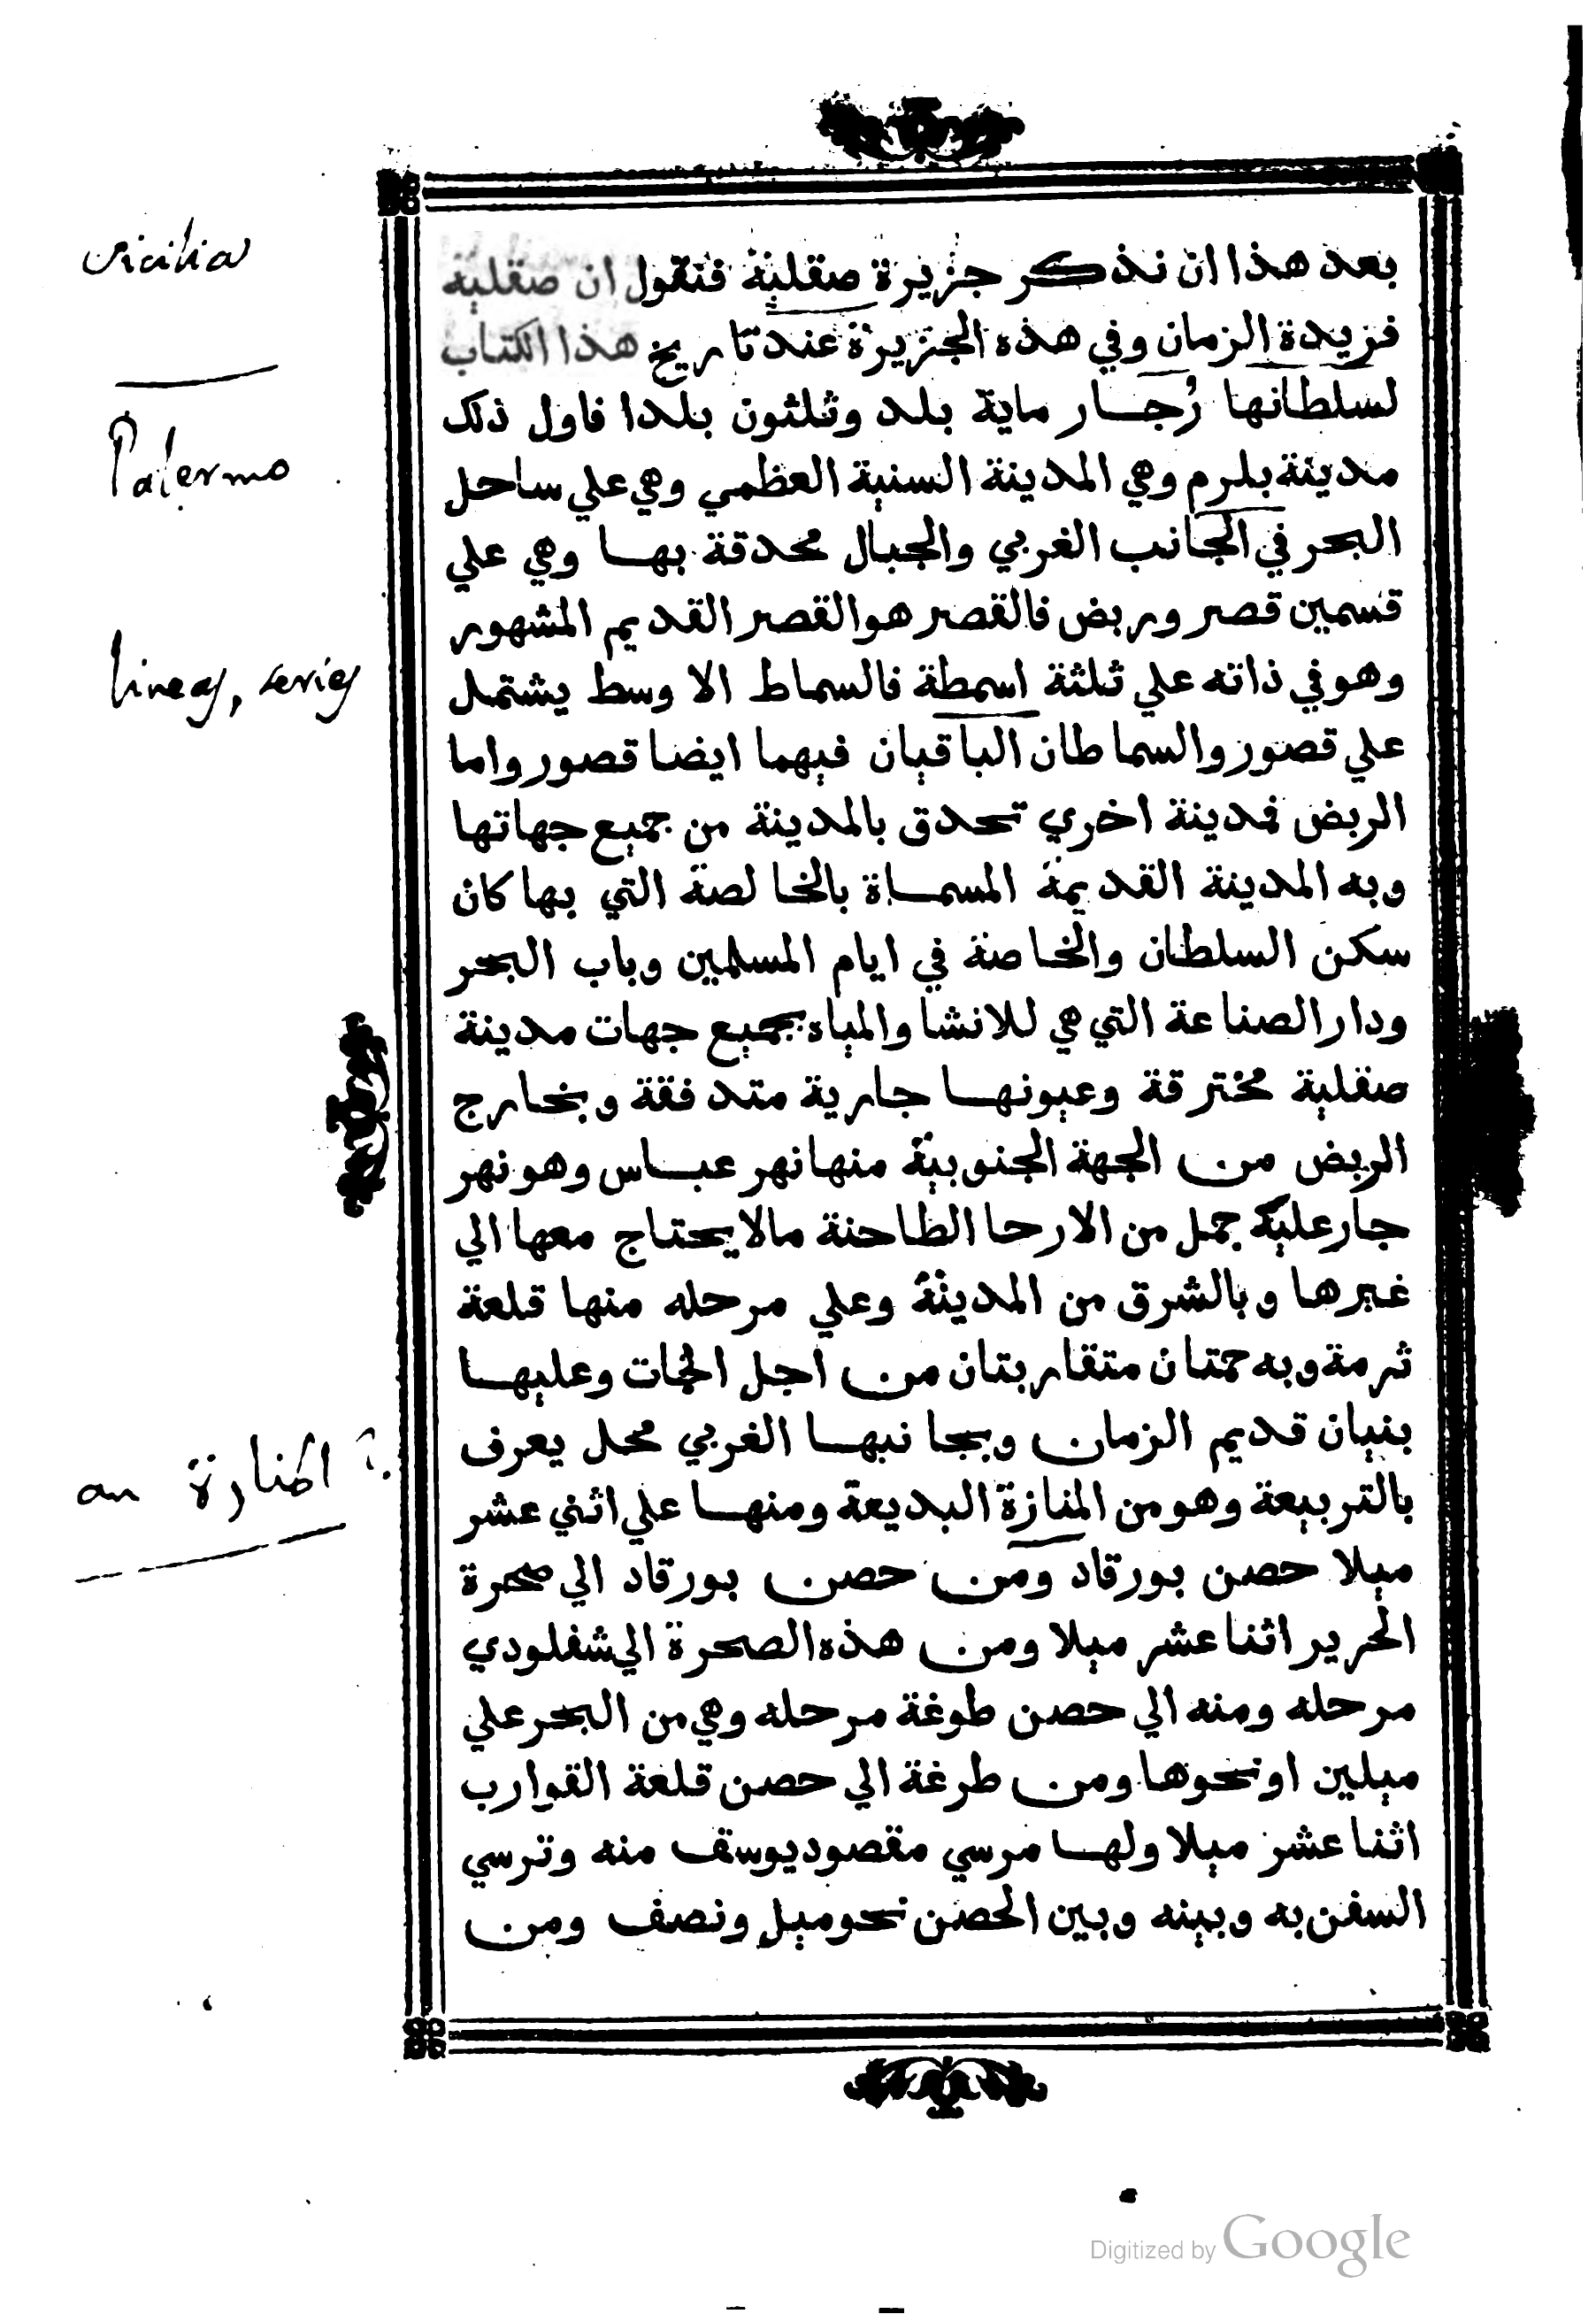 بعد هذا ان نذكر جزيرة صقلية فنقول ان صقلية
فزيدة الزمان وفي هذه الجزيرة عند تاريخ هذا الكتاب
لسلطانها رُجار ماية بلد وثلثون بلدا فاول ذلك
مدينة بلرم وهي المدينة السنية العظمي وهي علي ساحل
البحر في الجانب الغربي والجبال محدقة بها وهي علي
قسمين قصر وربض فالقصر هو القصر القديم المشهور
وهو في ذاته علي ثلثة اسمطة فالسماط الاوسط يشتمل
علي قصور والسماطان الباقيان فيهما ايضا قصور واما
الربض فمدينة اخري تحدق بالمدينة من جميع جهاتها
وبه المدينة القديمة المسماة بالخالصة التي بها كان
سكن السلطان والخاصة في ايام المسلمين وباب البحر
ودار الصناعة التي هي للانشا والمياه بجميع جهات مدينة
صقلية مخترقة وعيونها جارية متدفقة وبخارج
الربض من الجهة الجنوبية منها نهر عباس وهو نهر
جار عليه جمل من الارحا الطاحنة مالا يحتاج معها الي
غيرها وبالشرق من المدينة وعلي مرحله منها قلعة
ثرمة وبه حمتان متقاربتان من اجل الحمات وعليها
بنيان قديم الزمان وبجانبها الغربي محل يعرف
بالتربيعة وهو من المنازة البديعة ومنها علي اثني عشر
ميلا حصن بورقاد ومن حصن بورقاد الي صحرة
الحرير اثنا عشر ميلا ومن هذه الصحرة الي شفلودي
مرحله ومنه الي حصن طوغة مرحله وهي من البحر علي
ميلين او نحوها ومن طرغة الي حصن قلعة القوارب
اثنا عشر ميلا ولها مرسي مقصود يوسق منه وترسي
السفن به وبينه وبين الحصن نحو ميل ونصف ومن
Sicilia
Palermo
lineas, series
an المنارة ?
Digitized by Google